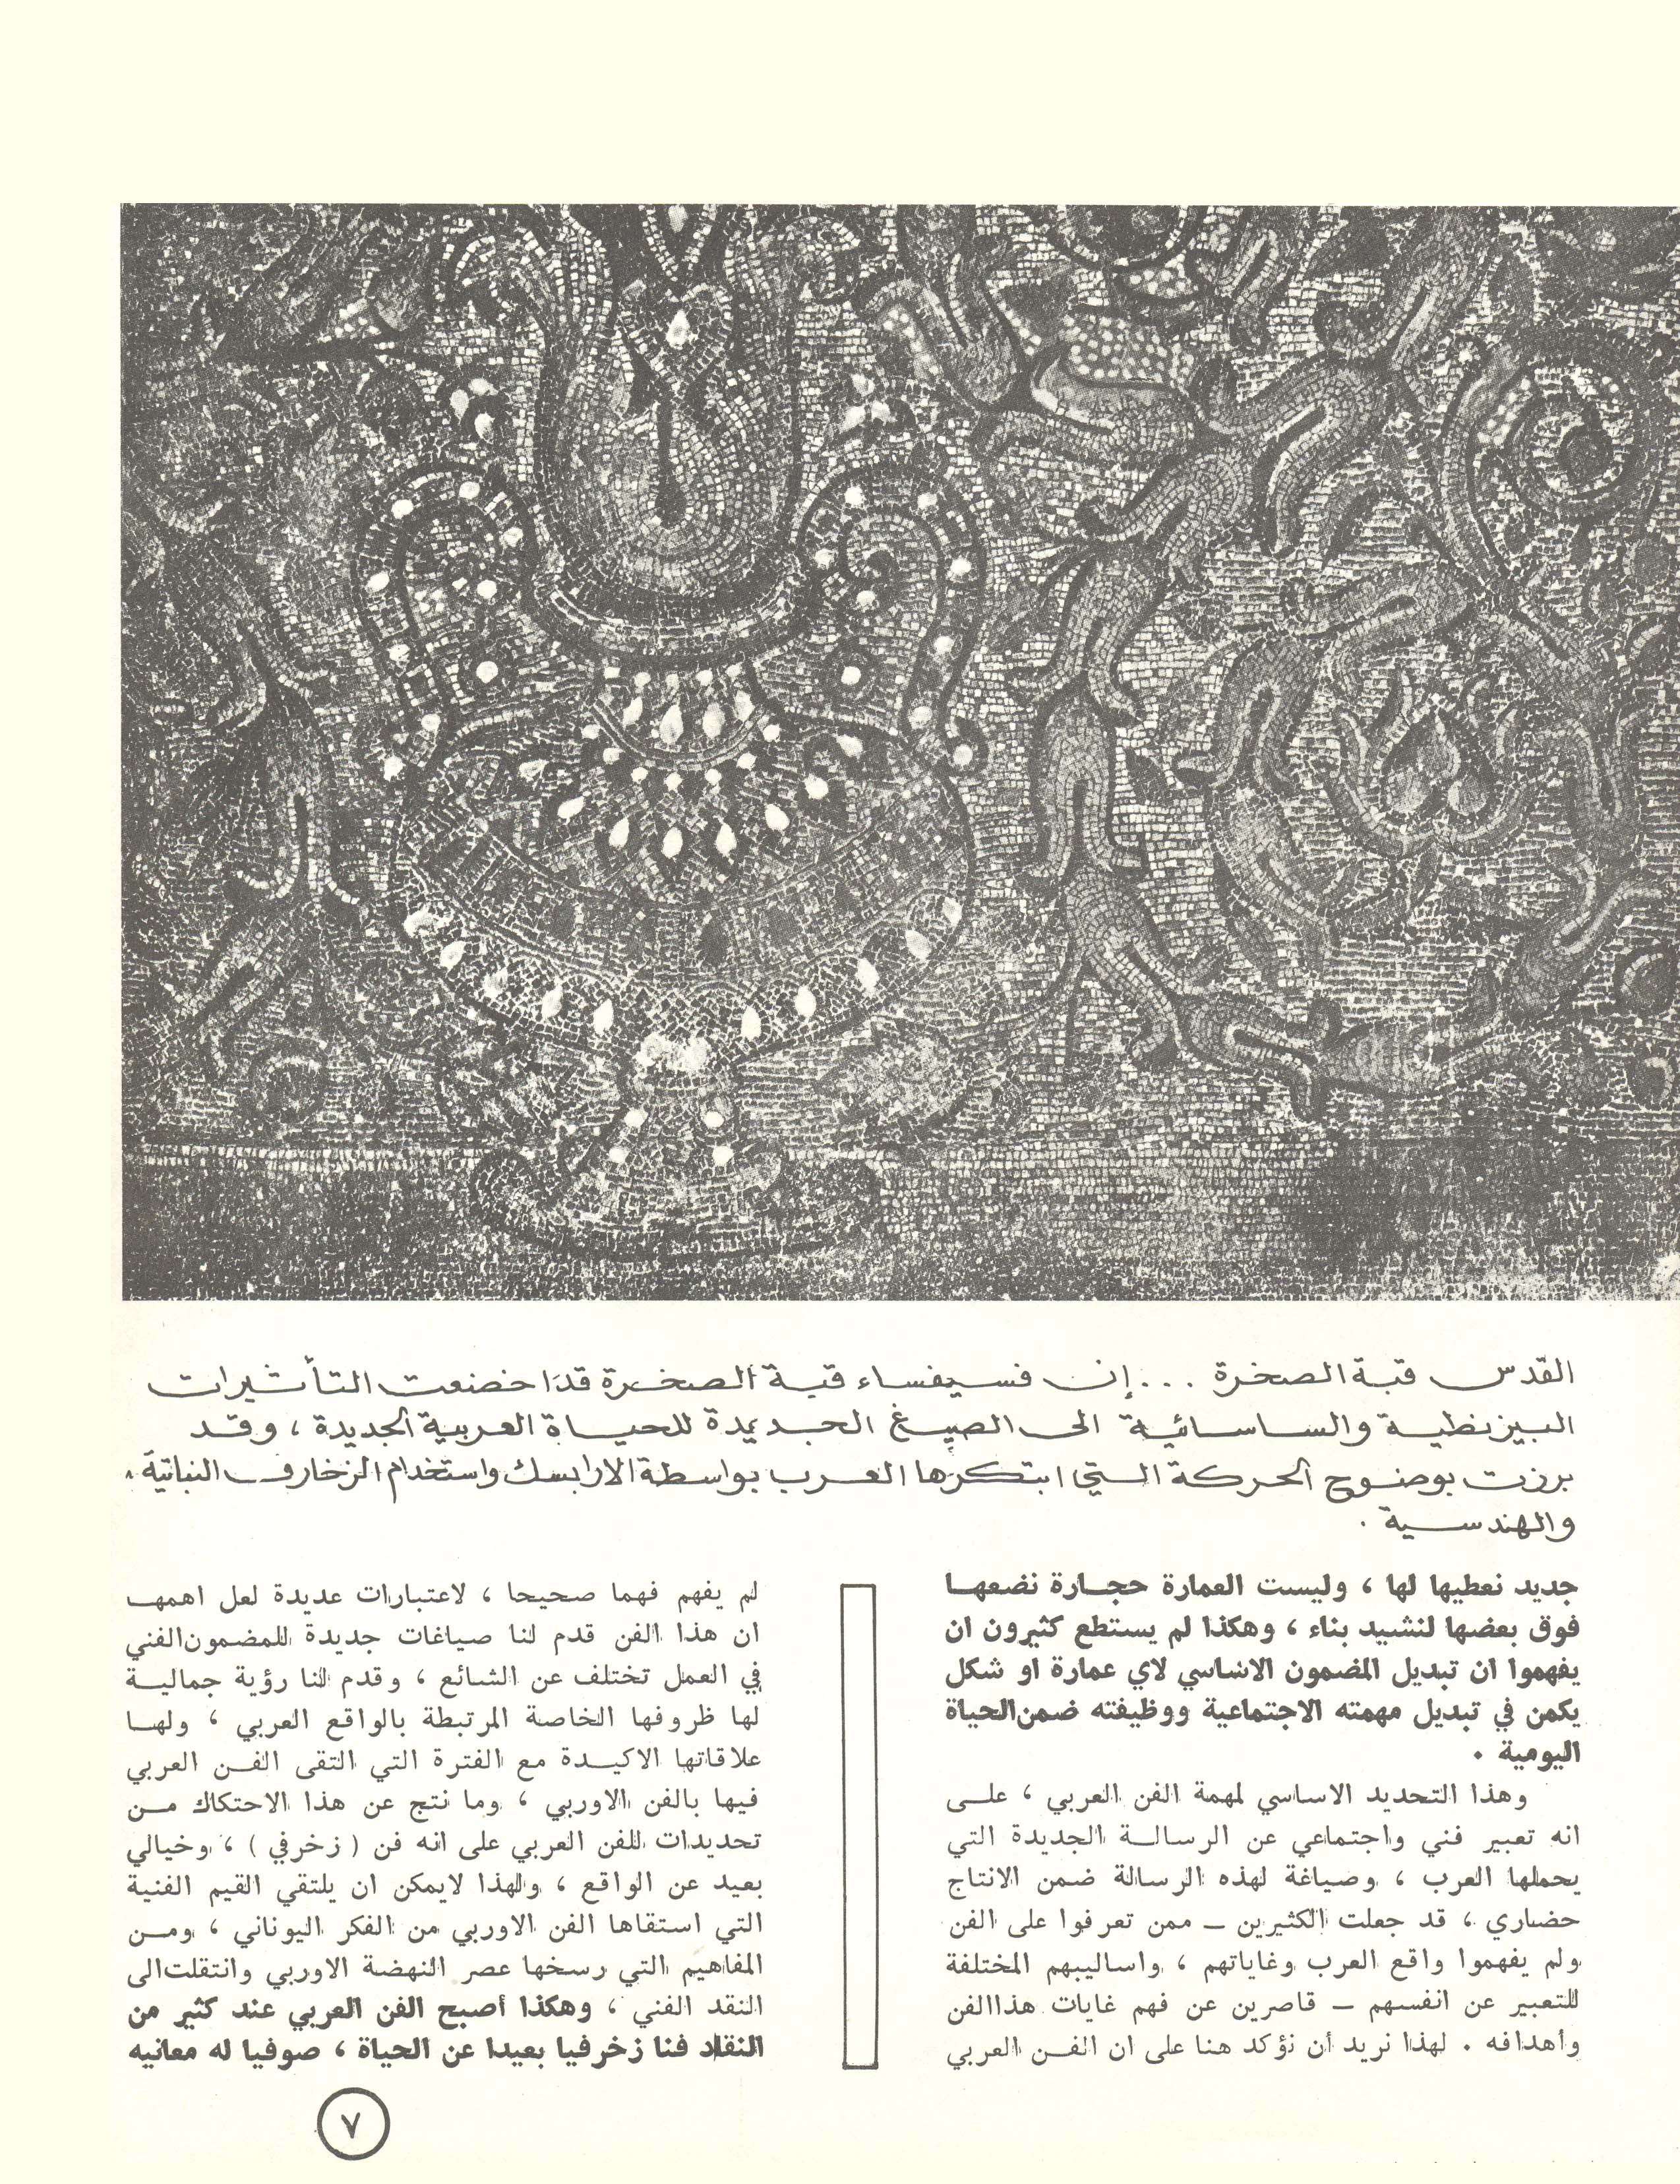 القدس قبة الصخرة ... إن فسيفساء قبة الصخرة قد اخضعت التأثيرات
البيزنطية والساسانية الى الصيغ الجديدة للحياة العربية الجديدة ، وقد
برزت بوضوح الحركة التي ابتكرها العرب بواسطة الارابسك واستخدام الزخارف النباتية
والهندسية .
جديد نعطيها لها ، وليست العمارة حجارة نضعها
فوق بعضها لنشيد بناء ، وهكذا لم يستطع كثيرون ان
يفهموا ان تبديل المضمون الاساسي لاي عمارة او شكل
يكمن في تبديل مهمته الاجتماعية ووظيفته ضمن الحياة
اليومية .
وهذا التحديد الاساسي لمهمة الفن العربي ، على
انه تعبير فني واجتماعي عن الرسالة الجديدة التي
يحملها العرب ، وصياغة لهذه الرسالة ضمن الانتاج
حضاري ، قد جعلت الكثيرين – ممن تعرفوا على الفن
ولم يفهموا واقع العرب وغاياتهم ، واساليبهم المختلفة
للتعبير عن انفسهم – قاصرين عن فهم غايات هذا الفن
وأهدافه . لهذا نريد أن نؤكد هنا على ان الفن العربي
لم يفهم فهما صحيحا ، لاعتبارات عديدة لعل اهمها
ان هذا الفن قدم لنا صياغات جديدة للمضمون الفني
في العمل تختلف عن الشائع ، وقدم لنا رؤية جمالية
لها ظروفها الخاصة المرتبطة بالواقع العربي ، ولها
علاقاتها الاكيدة مع الفترة التي التقى الفن العربي
فيها بالفن الاوربي ، وما نتج عن هذا الاحتكاك من
تحديدات للفن العربي على انه فن ( زخرفي ) ، وخيالي
بعيد عن الواقع ، ولهذا لايمكن ان يلتقي القيم الفنية
التي استقاها الفن الاوربي من الفكر اليوناني ، ومن
المفاهيم التي رسخها عصر النهضة الاوربي وانتقلت الى
النقد الفني ، وهكذا أصبح الفن العربي عند كثير من
النقاد فنا زخرفيا بعيدا عن الحياة ، صوفيا له معانيه
٧